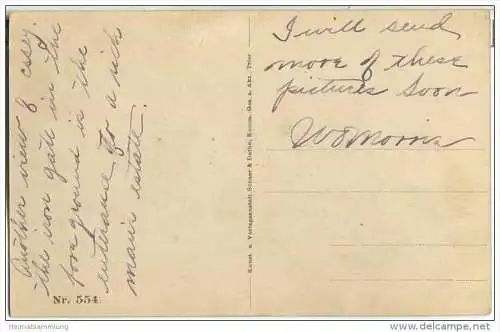 Another view of essey
the iron gate in the
fore ground is the
entrance to a rich
mans estate.
Nr. 554.
Kunst- u. Verlagsanstalt Schaar & Dathe, Komm.-Ges. a. Akt., Trier
I will send
more of these
pictures soon
W E Morris
Heimatsammlung
www.oldthing.de